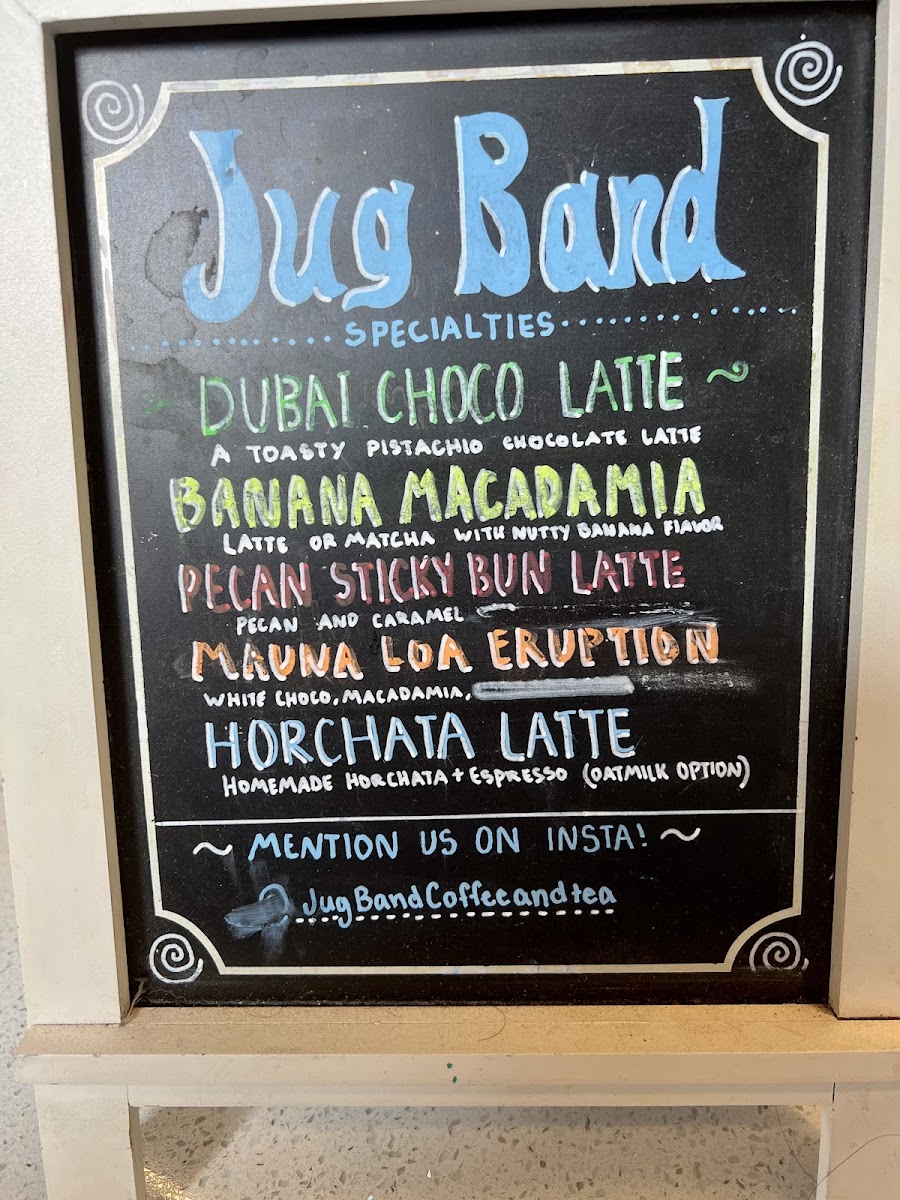 Jug Band
SPECIALTIES
~ DUBAI CHOCO LATTE ~
A TOASTY PISTACHIO CHOCOLATE LATTE
BANANA MACADAMIA
LATTE OR MATCHA WITH NUTTY BANANA FLAVOR
PECAN STICKY BUN LATTE
PECAN AND CARAMEL
MAUNA LOA ERUPTION
WHITE CHOCO, MACADAMIA,
HORCHATA LATTE
HOMEMADE HORCHATA + ESPRESSO (OATMILK OPTION)
~ MENTION US ON INSTA! ~
JugBandCoffeeandtea